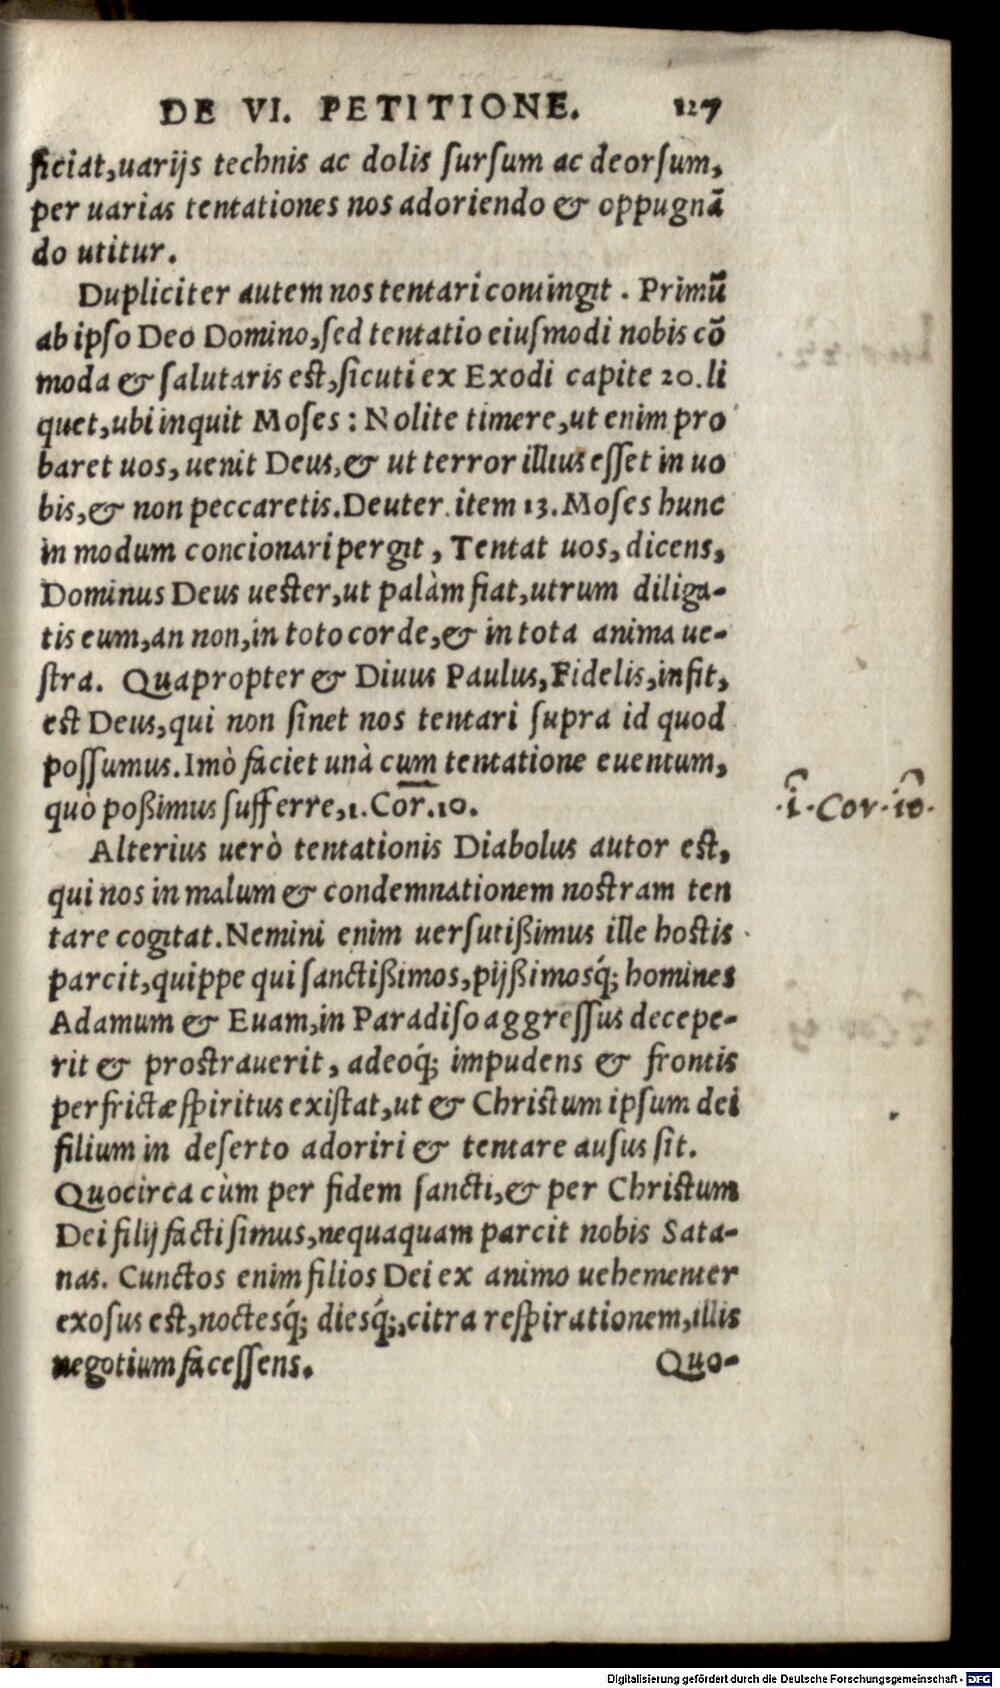 DE VI. PETITIONE. 127
ficiat,uarijs technis ac dolis sursum ac deorsum,
per uarias tentationes nos adoriendo & oppugnā
do utitur.
Dupliciter autem nos tentari contingit. Primū
ab ipso Deo Domino,sed tentatio eiusmodi nobis cō
moda & salutaris est,sicuti ex Exodi capite 20.li
quet,ubi inquit Moses: Nolite timere,ut enim pro
baret uos, uenit Deus,& ut terror illius esset in uo
bis,& non peccaretis.Deuter.item 13.Moses hunc
in modum concionari pergit, Tentat uos, dicens,
Dominus Deus uester,ut palàm fiat,utrum diliga-
tis eum,an non,in toto corde,& in tota anima ue-
stra. Quapropter & Diuus Paulus,Fidelis,infit,
est Deus,qui non sinet nos tentari supra id quod
possumus.Imò faciet unà cum tentatione euentum,
quò poßimus sufferre,1.Cor.10.
·i·Cor·io·
Alterius uerò tentationis Diabolus autor est,
qui nos in malum & condemnationem nostram ten
tare cogitat.Nemini enim uersutißimus ille hostis
parcit,quippe qui sanctißimos,pijßimosq́; homines
Adamum & Euam,in Paradiso aggressus decepe-
rit & prostrauerit, adeoq́; impudens & frontis
perfrictæ spiritus existat,ut & Christum ipsum dei
filium in deserto adoriri & tentare ausus sit.
Quocirca cùm per fidem sancti,& per Christum
Dei filij facti simus,nequaquam parcit nobis Sata-
nas. Cunctos enim filios Dei ex animo uehementer
exosus est,noctesq́; diesq́;,citra respirationem,illis
negotium facessens. Quo-
Digitalisierung gefördert durch die Deutsche Forschungsgemeinschaft - DFG